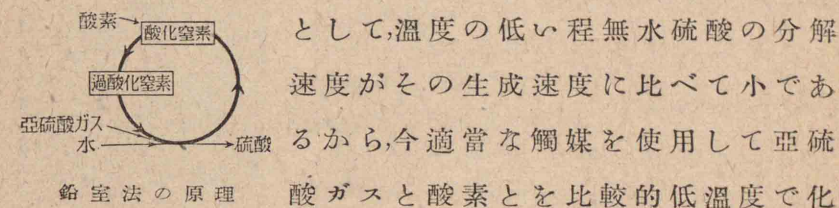 酸素
酸化窒素
過酸化窒素
亞硫酸ガス
水
硫酸
鉛室法の原理
として,溫度の低い程無水硫酸の分解
速度がその生成速度に比べて小であ
るから,今適當な觸媒を使用して亞硫
酸ガスと酸素とを比較的低溫度で化